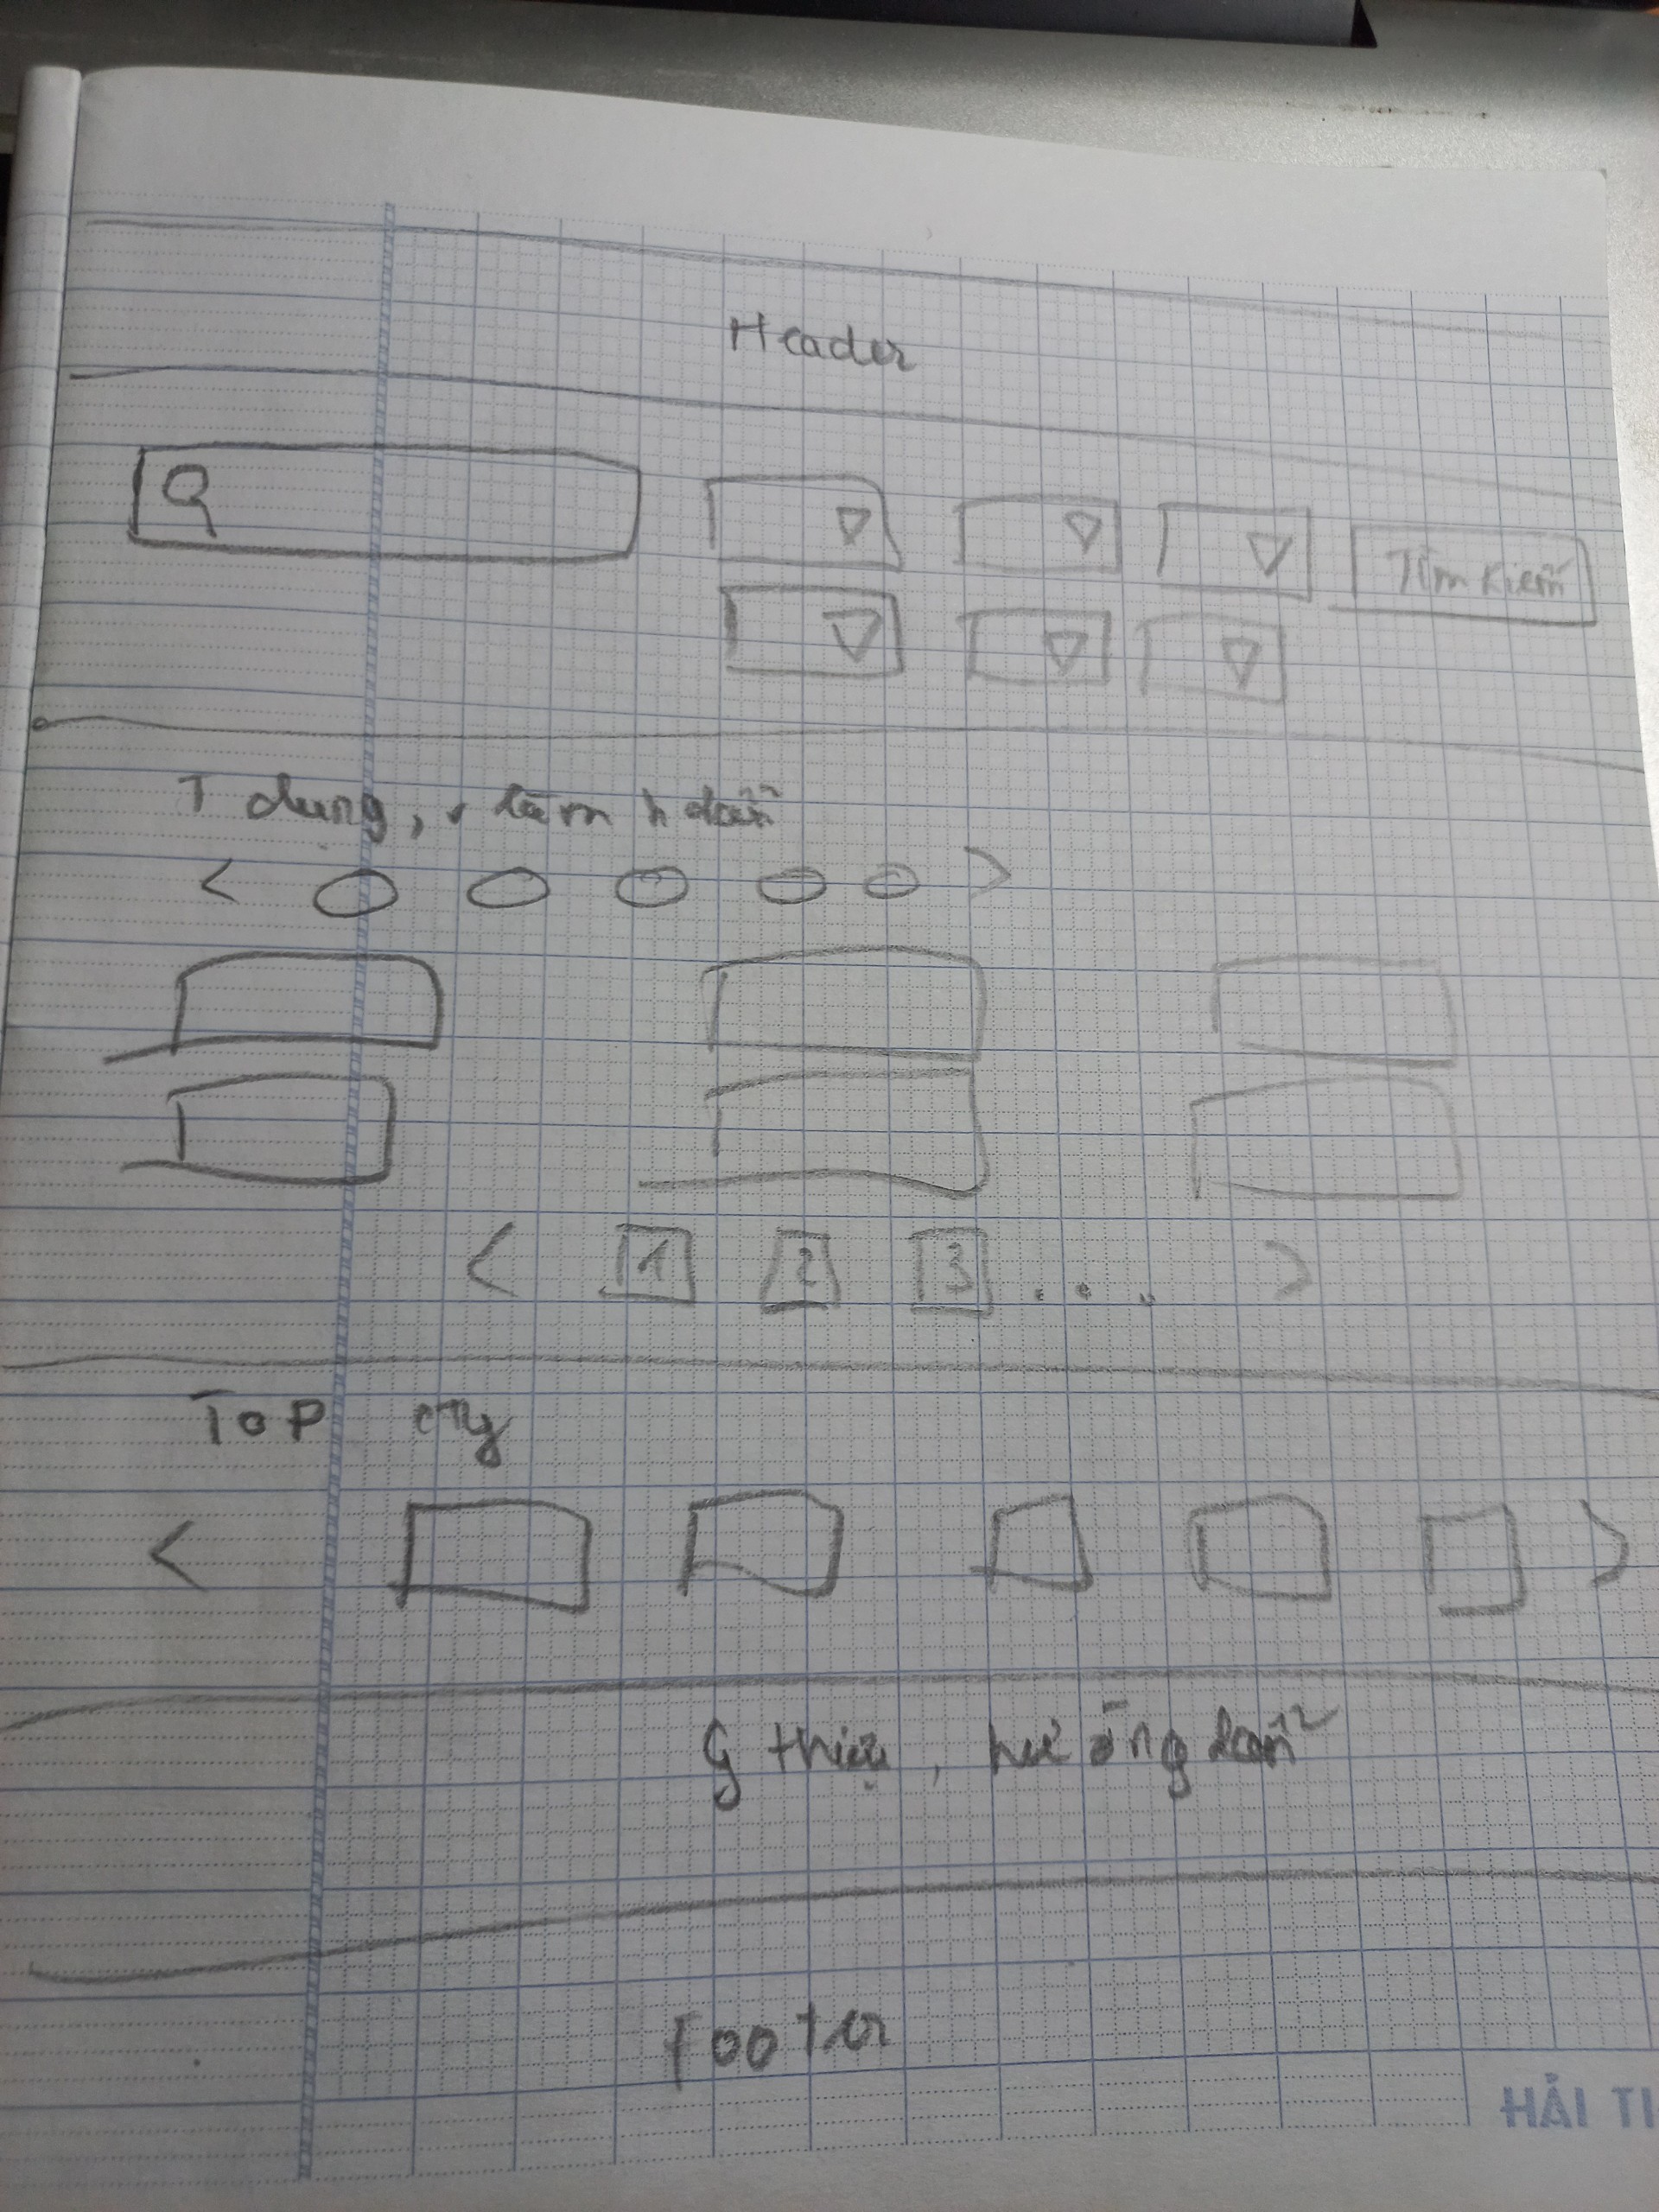 Header
Tìm Kiếm
T dụng, làm h dẫn
1 2 3 ...
TOP cty
g thiệu, hướng dẫn
Footer
HẢI TI